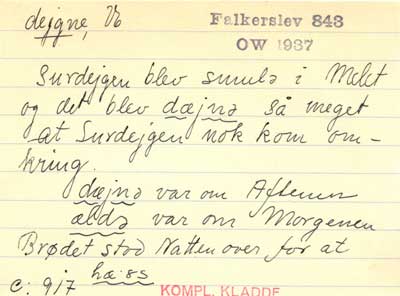 dejgne, Vb
Falkerslev 843
OW 1937
Surdejgen blev smulə i Melet
og det blev dæjnə så meget
at Surdejgen nok kom om-
kring.
dæjnə var om Aftenen
æltə var om Morgenen
Brødet stod Natten over for at
hæ:əs
c: 9/7
KOMPL. KLADDE